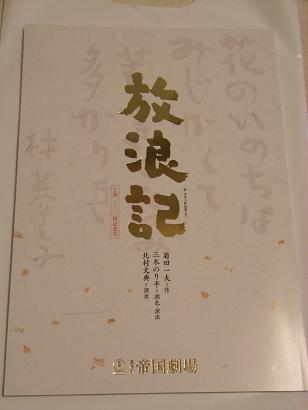 花のいのちは
みじかくて
多かりき
林芙美子
放浪記
菊田一夫=作
三木のり平=潤色・演出
北村文典=演出
帝国劇場